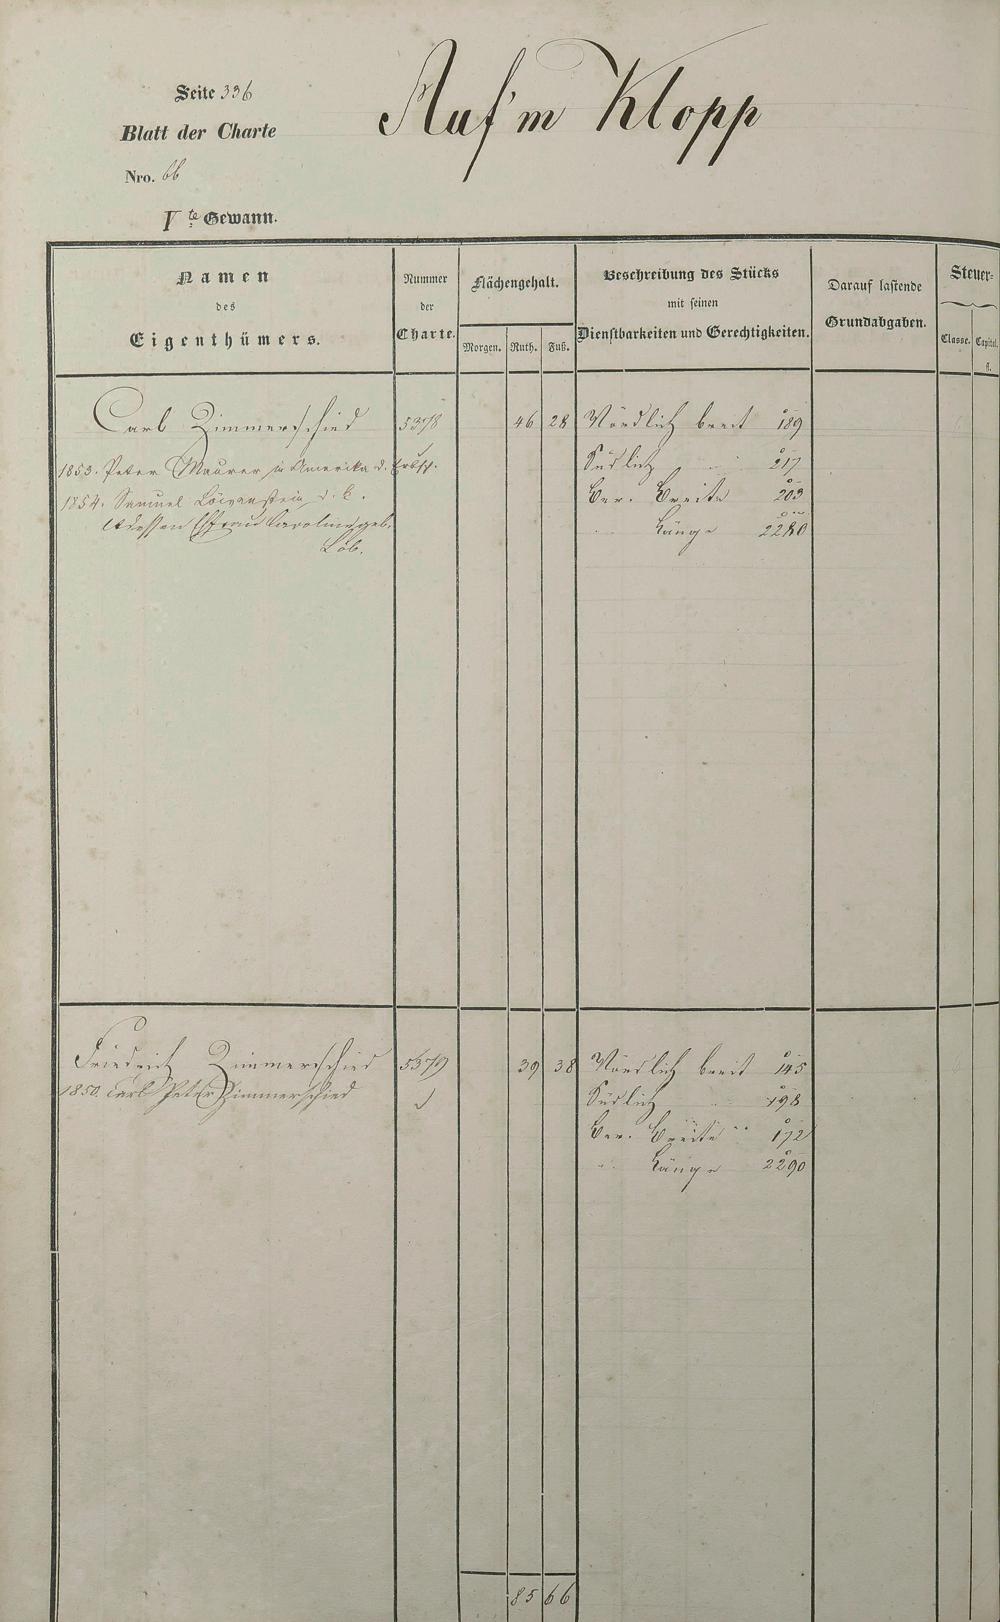 Seite 336
Auf'm Klopp
Blatt der Charte
Nro. 66
V te Gewann.
Namen
des
Eigenthümers.
Nummer
der
Charte.
Flächengehalt.
Morgen. Ruth. Fuß.
Beschreibung des Stücks
mit seinen
Dienstbarkeiten und Gerechtigkeiten.
Darauf lastende
Grundabgaben.
Steuer=
Classe. Capital.
fl.
Carl Zimmerschied 5378 46 28 Nördlich breit 189
1853. Peter Maurer in Amerika d. Erbsch. Südlich 217
1854. Samuel Löwenstein d. k. Ber. Breite 203
Ehefrau Caroline geb. Länge 2280
Löb.
Friedrich Zimmerschied 5379 39 38 Nördlich breit 145
1850. Carl Peter Zimmerschied Südlich 198
Ber. Breite 172
Länge 2290
85 66